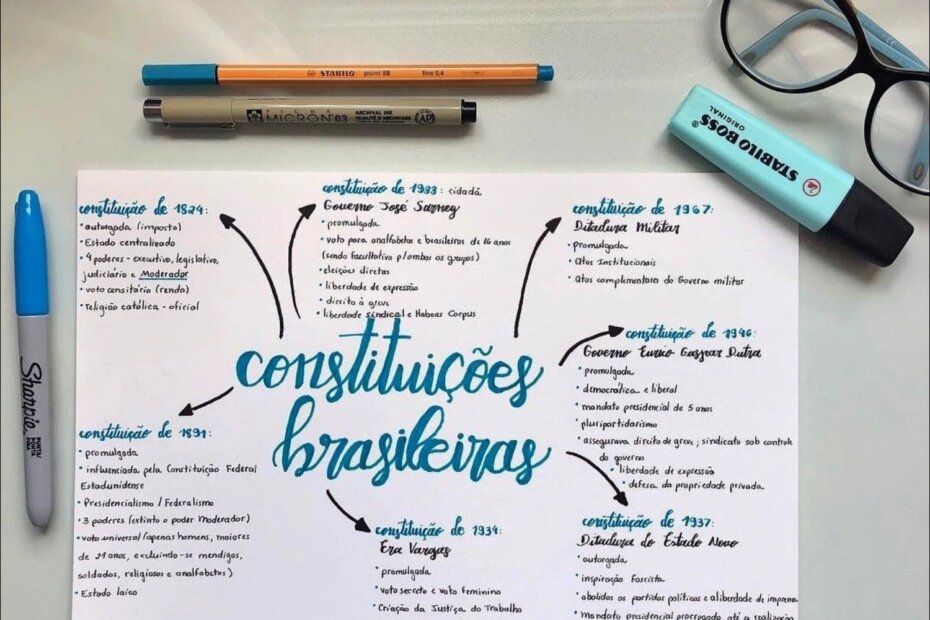 STABILO point 88 fine 0,4
PIGMA MICRON 03 ARCHIVAL INK
QUALITÉ D'ARCHIVAGE
AP
STABILO BOSS
ORIGINAL
Sharpie
constituição de 1824:
• autorgada (imposta)
• Estado centralizado
• 4 poderes - executivo, legislativo,
judiciário e Moderador
• voto censitário (renda)
• religião católica - oficial
constituição de 1988: cidadã
Governo José Sarney
• promulgada
• voto para analfabetos e brasileiros de 16 anos
(sendo facultativo p/ambos os grupos)
• eleições diretas
• liberdade de expressão
• direito à greve
• liberdade sindical e Habeas Corpus
constituição de 1967:
Ditadura Militar
• promulgada
• Atos Institucionais
• Atos complementares do Governo militar
constituição de 1946:
Governo Eurico Gaspar Dutra
• promulgada
• democrática e liberal
• mandato presidencial de 5 anos
• pluripartidarismo
• assegurava direito de greve; sindicato sob controle
do governo
• liberdade de expressão
• defesa da propriedade privada.
constituições
brasileiras
constituição de 1891:
• promulgada
• influenciada pela Constituição Federal
Estadunidense
• Presidencialismo / Federalismo
• 3 poderes (extinto o poder moderador)
• voto universal (apenas homens, maiores
de 21 anos, excluindo-se mendigos,
soldados, religiosos e analfabetos)
• Estado laico
constituição de 1934:
Era Vargas
• promulgada
• voto secreto e voto feminino
• Criação da Justiça do Trabalho
constituição de 1937:
Ditadura do Estado Novo
• autorgada
• inspiração fascista
• abolidos os partidos políticos e a liberdade de imprensa
• mandato presidencial prorrogado até a realização